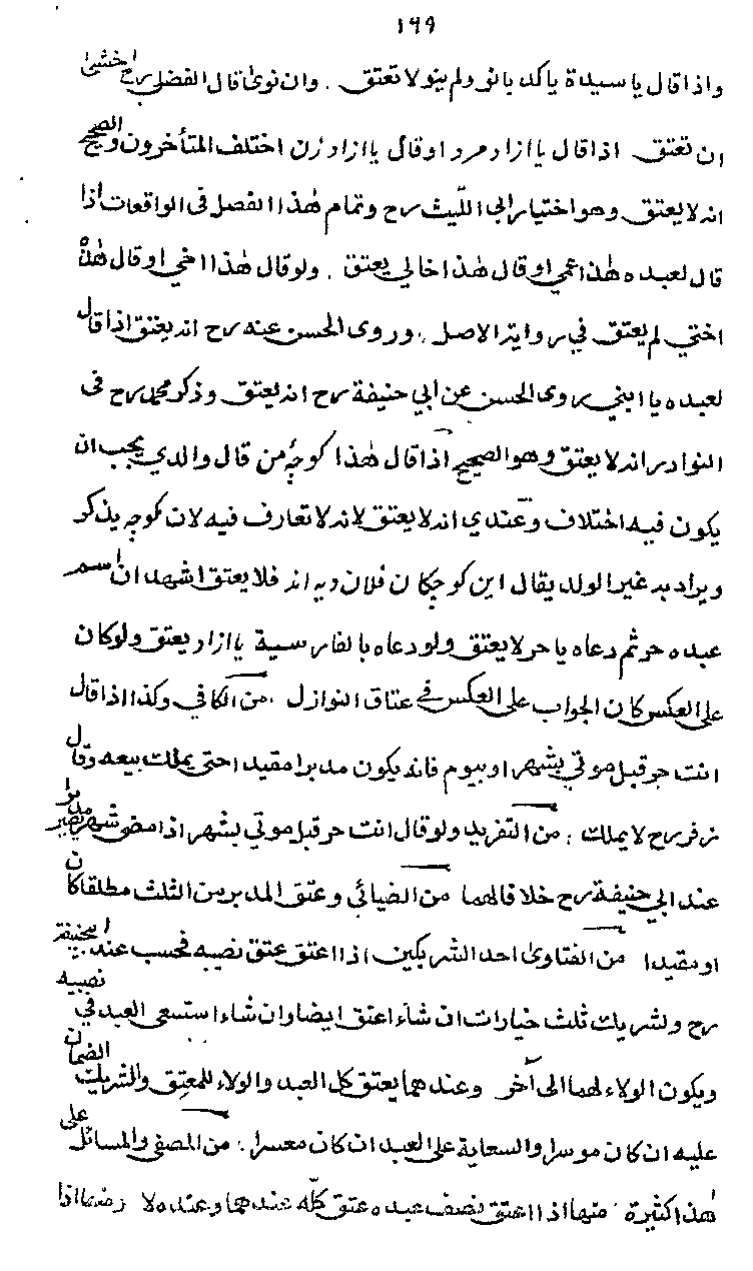 ١٩٩
واذا قال يا سيدة يا كد بانو ولم ينو لا تعتق . وان نوى قال الفضل رح اخشى
ان تعتق اذا قال يا ازاد مرد او قال يا ازاد زن اختلف المتأخرون والصحيح
انه لا يعتق وهو اختيار ابى الليث رح وتمام هذا الفصل فى الواقعات اذا
قال لعبده هذا عمى او قال هذا خالي يعتق . ولو قال هذا اخي او قال هذه
اختي لم يعتق في رواية الاصل . وروى الحسن عنه رح انه يعتق اذا قال
لعبده يا ابني روى الحسن عن ابي حنيفة رح انه يعتق وذكر محمد رح فى
النوادر انه لا يعتق وهو الصحيح اذا قال هذا كوچۀ من قال والدي يجب ان
يكون فيه اختلاف وعندي انه لا يعتق لانه لا تعارف فيه لان كوچه يذكر
ويراد به غير الولد يقال اين كوچكان فلان ديه اند فلا يعتق اشهد ان اسم
عبده حر ثم دعاه يا حر لا يعتق ولو دعاه بالفارسية يا ازاد يعتق ولو كان
على العكس كان الجواب على العكس في عتاق النوازل . من الكافي وكذا اذا قال
انت حر قبل موتي بشهر او بيوم فانه يكون مدبرا مقيدا حتى يملك بيعه وقال
زفر رح لا يملك : من التفريد ولو قال انت حر قبل موتي بشهر اذا مضى شهر يصير مدبرا
عند ابي حنيفة رح خلافا لهما من الضيائي وعتق المدبر من الثلث مطلقا كان
او مقيدا من الفتاوى احد الشريكين اذا اعتق عتق نصيبه فحسب عند ابيحنيفة
رح ولشريك ثلث خيارات ان شاء اعتق ايضا وان شاء استسعى العبد في نصيبه
ويكون الولاء لهما الى آخر وعندهما يعتق كل العبد والولاء للمعتق وللشريك الضمان
عليه ان كان موسرا والسعاية على العبد ان كان معسرا : من المصفى والمسائل على
هذا كثيرة منها اذا اعتق نصف عبده عتق كلّه عندهما وعنده لا ومنها اذا